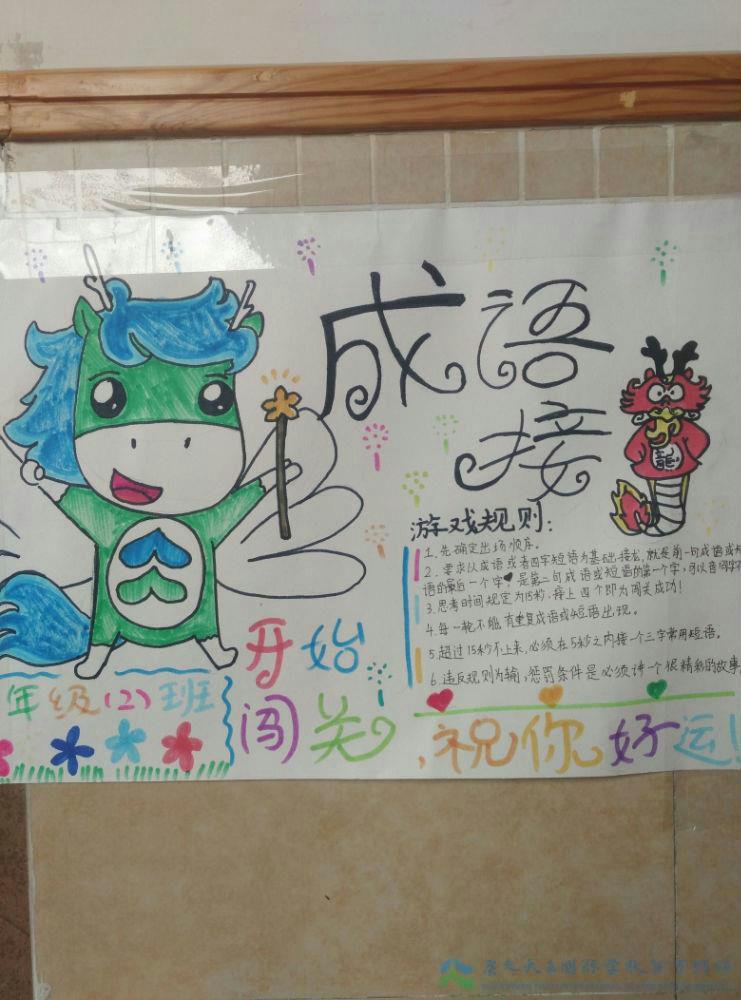 成语
接
龍
游戏规则:
1.先确定出场顺序。
2.要求以成语或者四字短语为基础接龙,就是前一句成语或短
语的最后一个字是第二句成语或短语的第一个字,可以音同字不
3.思考时间规定为15秒,接上四个即为闯关成功!
4.每一轮不能有重复成语或短语出现。
5.超过15秒不上来,必须在5秒之内接一个三字常用短语。
6.违反规则为输,惩罚条件是必须讲一个很精彩的故事
年级(2)班
开始
闯关,祝你好运!